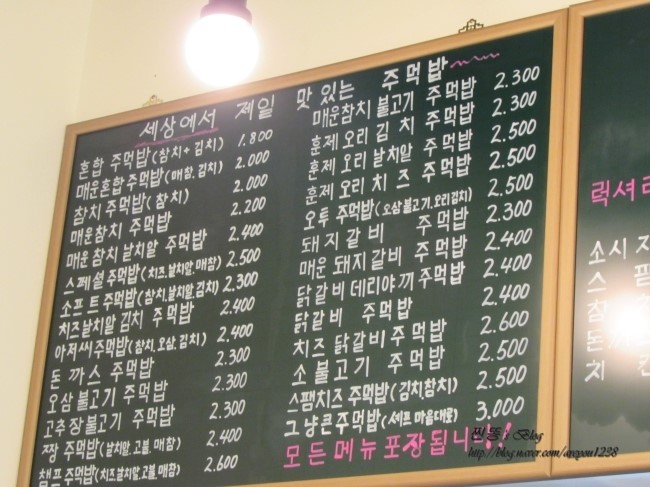 세상에서 제일 맛있는 주먹밥
혼합 주먹밥(참치+김치) 1.800
매운혼합주먹밥(매참,김치) 2.000
참치 주먹밥(참치) 2.000
매운참치 주먹밥 2.200
매운 참치날치알 주먹밥 2.400
스페셜주먹밥(치즈,날치알,매참) 2.500
소프트주먹밥(참치,날치알,김치) 2.300
치즈날치알김치 주먹밥 2.400
아저씨주먹밥(참치,오삼,김치) 2.400
돈까스 주먹밥 2.300
오삼불고기 주먹밥 2.300
고추장불고기 주먹밥 2.300
짱주먹밥(날치알,고불,매참) 2.400
챔프주먹밥(치즈,날치알,고불,매참) 2.600
매운참치 불고기 주먹밥 2.300
훈제오리김치 주먹밥 2.300
훈제오리날치알 주먹밥 2.500
훈제오리치즈 주먹밥 2.500
오투주먹밥(오삼불고기,오리김치) 2.500
돼지갈비 주먹밥 2.300
매운돼지갈비 주먹밥 2.400
닭갈비데리야끼주먹밥 2.400
닭갈비 주먹밥 2.400
치즈닭갈비주먹밥 2.600
소불고기 주먹밥 2.500
스팸치즈주먹밥(김치,참치) 2.500
그냥큰주먹밥(셰프마음대로) 3.000
모든메뉴포장됩니다!
럭셔리
소시지
스팸
참
돈까
치